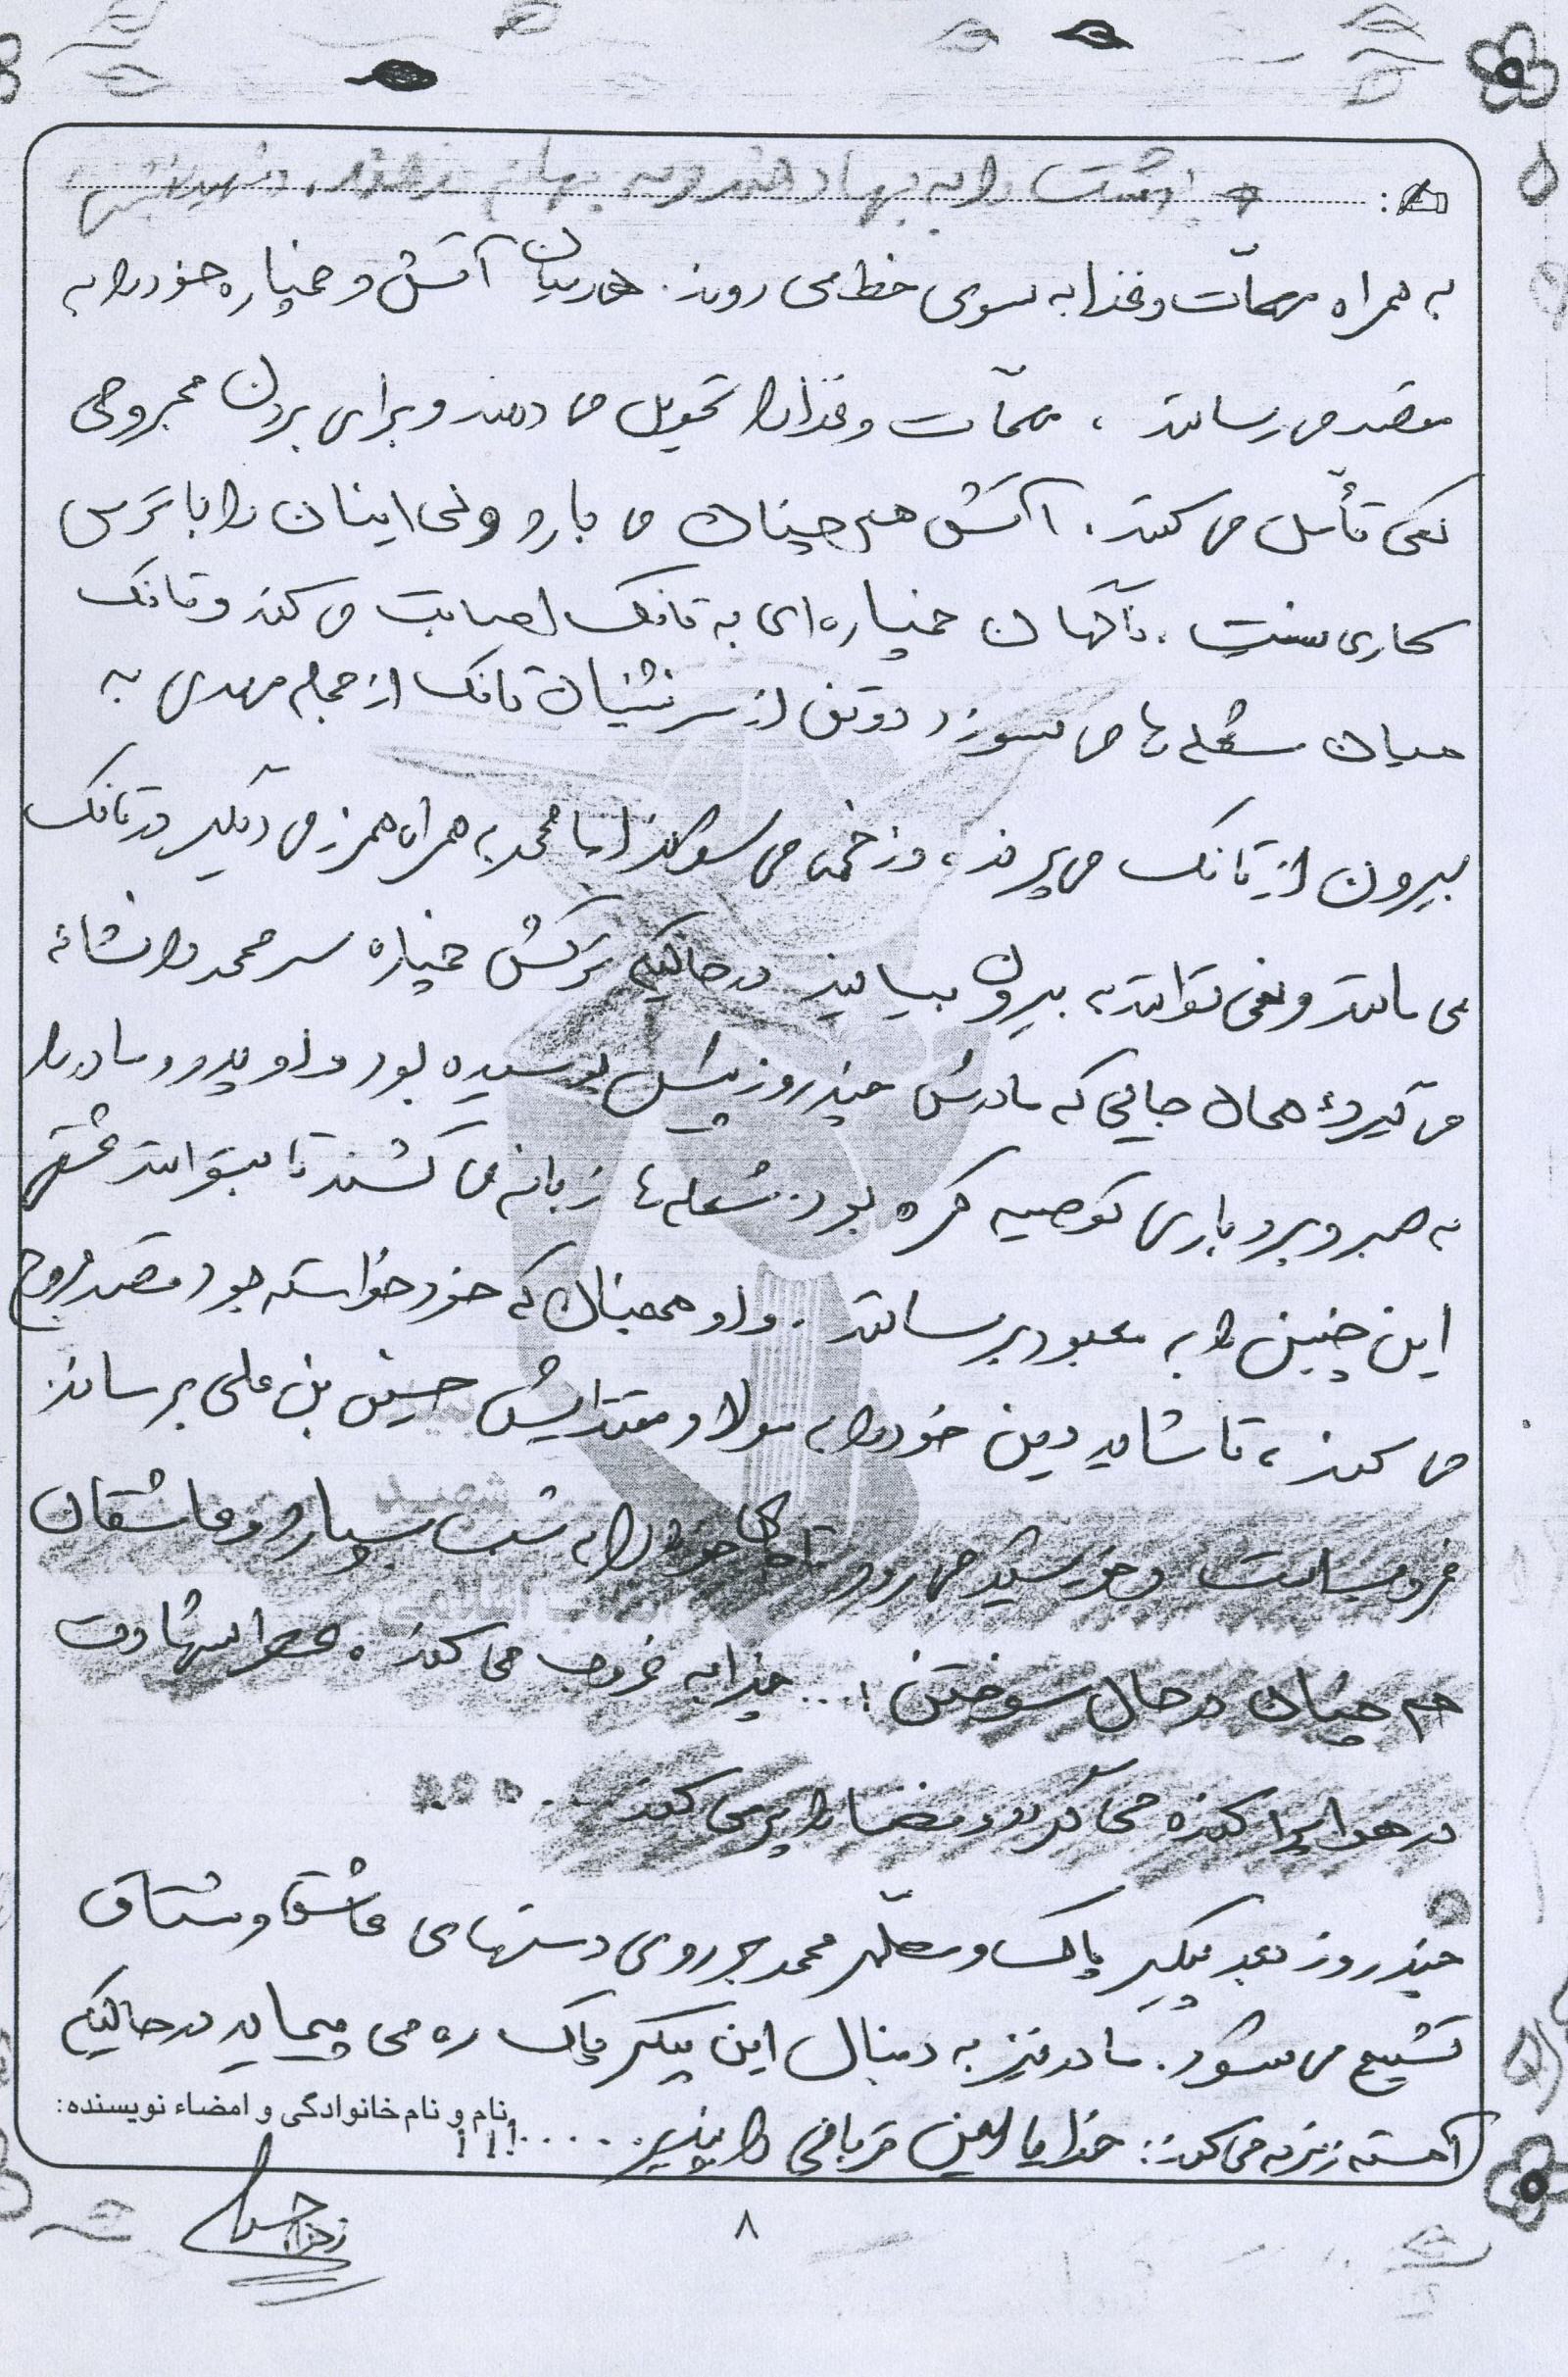 بهشت را به بها دهند و به بهانه ندهند.
به همراه مهمّات و غذا به سوی خط می روند. درمیان آتش و خمپاره خود را به
مقصد می رسانند ، مهمّات و غذا را تحویل می دهند و برای بردن مجروحی
کمی تأمل می کنند. آتش هم چنان می بارد ولی اینان را با ترس
کاری نیست. ناگهان خمپاره ای به تانک اصابت می کند و تانک
میان شعله ها می سوزد دو تن از سرنشینان تانک از جمله مهدی به
بیرون از تانک می پرند، و زخمی می شوند اما محمد به همراه همرزمی دیگر در تانک
می مانند و نمی توانند به بیرون بیایند در حالیکه ترکش خمپاره سر محمد را نشانه
می گیرد همان جایی که مادرش چند روز پیش بوسیده بود و او پدر و مادر را
به صبر و بردباری توصیه کرده بود. شعله ها زبانه می کشند تا بتوانند عشقی
این چنین را به معبود برسانند. و او همچنان که خود خواسته بود قصد عروج
می کند ، تا شاید دین خود را به مولا و مقتدایش حسین بن علی برساند.
غروب است و خورشید می رود تا جای خود را به شب بسپارد و عاشقان
هم چنان در حال سوختن! ... چذابه غروب می کند، عطر شهادت
در هوا پراکنده می گردد و فضا را پر می کند .....
چند روز بعد پیکر پاک و مطهّر محمد بر روی دستهای عاشق و مشتاق
تشییع می شود. مادر نیز به دنبال این پیکر پاک ره می پیماید در حالیکه
آهسته زمزمه می کند: خدایا این قربانی را بپذیر.......!!!
نام و نام خانوادگی و امضاء نویسنده:
شهید
انقلاب اسلامی
۸